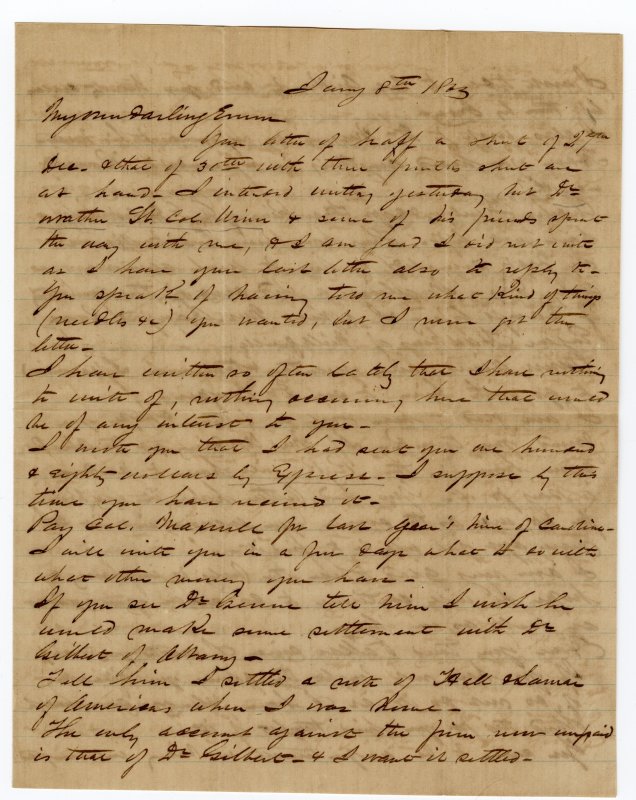 Jany 8th 1863
My own darling Emm
Your letter of half a sheet of 27th
Dec. & that of 30th with three fourths sheet are
at hand - I intended writing yesterday but Dr
Lt. Col. Winn & some of his friends spent
the day with me, & I am glad I did not write
as I have your last letter also to reply to -
You speak of having told me what kind of things
(needles &c) you wanted, but I never got the
letter -
I have written so often lately that I have nothing
to write of, nothing occurring here that would
be of any interest to you -
I wrote you that I had sent you one hundred
& eighty dollars by Express - I suppose by this
time you have received it -
Pay Col. Maxwell for last year's hire of Caroline -
I will write you in a few days what to do with
what other money you have -
If you see Dr tell him I wish he
would make some settlement with Dr
Gilbert of Albany -
Tell him I settled a note of Hall & Lamar
of Americus when I was home -
The only account against the firm now unpaid
is that of Dr Gilbert - & I want it settled -